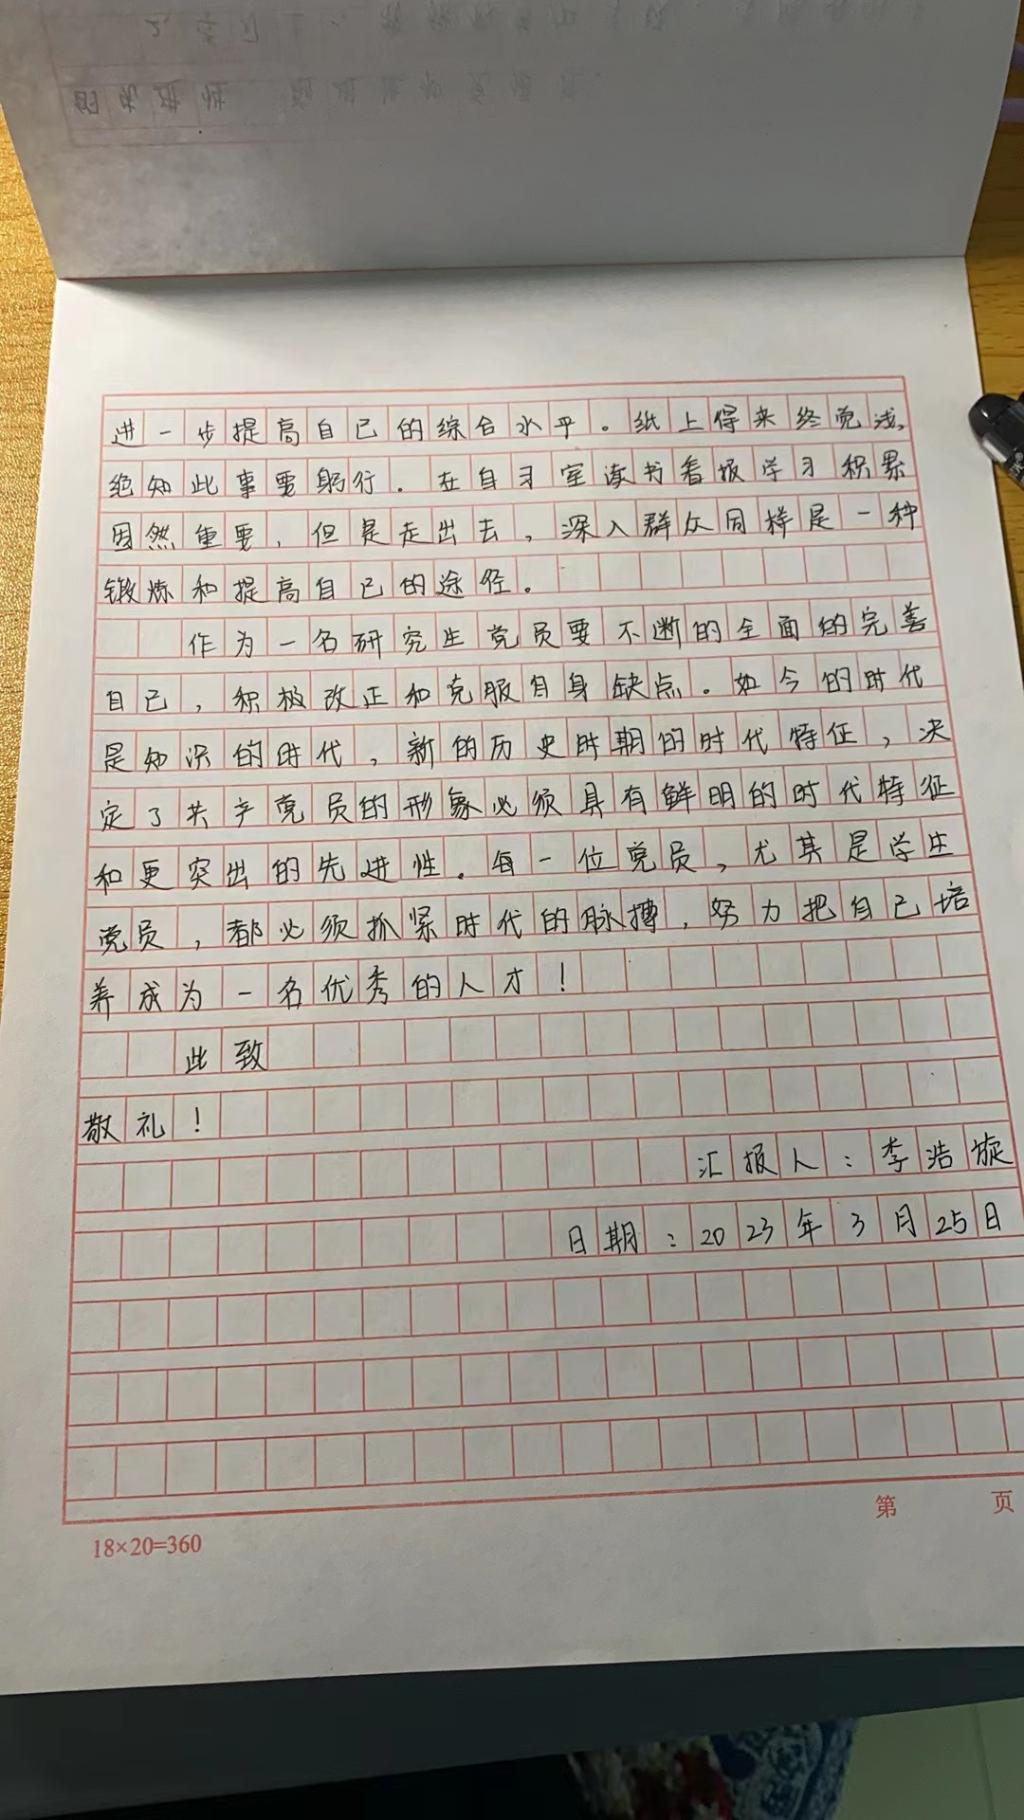 进一步提高自己的综合水平。纸上得来终觉浅,
绝知此事要躬行.在自习室读书看报学习积累
固然重要,但是走出去,深入群众同样是一种
锻炼和提高自己的途径。
作为一名研究生党员要不断的全面的完善
自己,积极改正和克服自身缺点。如今的时代
是知识的时代,新的历史时期的时代特征,决
定了共产党员的形象必须具有鲜明的时代特征
和更突出的先进性.每一位党员,尤其是学生
党员,都必须抓紧时代的脉搏,努力把自己培
养成为一名优秀的人才!
此致
敬礼!
汇报人:李浩旋
日期:2023年3月25日
第 页
18×20=360